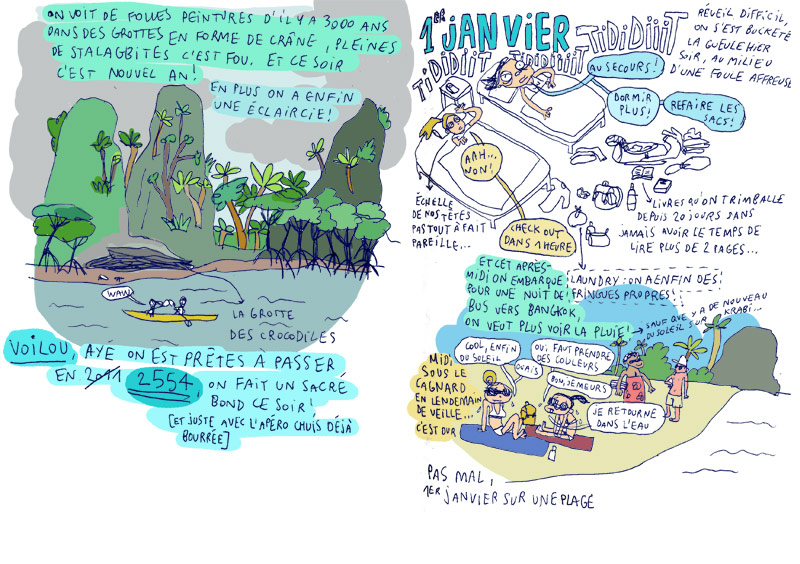 ON VOIT DE FOLLES PEINTURES D'IL Y A 3000 ANS
DANS DES GROTTES EN FORME DE CRÂNE, PLEINES
DE STALAGBITES C'EST FOU. ET CE SOIR
C'EST NOUVEL AN!
EN PLUS ON A ENFIN
UNE ÉCLAIRCIE!
WAW
LA GROTTE
DES CROCODILES
VOILOU, AYE ON EST PRÊTES A PASSER
EN 2011 2554, ON FAIT UN SACRÉ
BOND CE SOIR!
[ET JUSTE AVEC L'APÉRO CHUIS DÉJÀ
BOURRÉE]
1ER JANVIER
TIDIDIIIT
TIDIDIIIT
TIDIDIIIT
RÉVEIL DIFFICIL,
ON S'EST BUCKETÉ
LA GUEULE HIER
SOIR, AU MILIEU
D'UNE FOULE AFFREUSE
AU SECOURS!
DORMIR
PLUS!
REFAIRE LES
SACS!
AAH...
NON!
CHECK OUT
DANS 1 HEURE
ÉCHELLE
DE NOS TÊTES
PAS TOUT À FAIT
PAREILLE...
LIVRES QU'ON TRIMBALLE
DEPUIS 20 JOURS DANS
JAMAIS AVOIR LE TEMPS DE
LIRE PLUS DE 2 PAGES...
LAUNDRY: ON A ENFIN DES
FRINGUES PROPRES!
ET CET APRÈS-
MIDI ON EMBARQUE
POUR UNE NUIT DE
BUS VERS BANGKOK
ON VEUT PLUS VOIR LA PLUIE!
SAUF QUE Y A DE NOUVEAU
DU SOLEIL SUR
KRABI...
MIDI,
SOUS LE
CAGNARD
EN LENDEMAIN
DE VEILLE...
C'EST DUR
COOL, ENFIN
DU SOLEIL
OUAIS
OUI, FAUT PRENDRE
DES COULEURS
BON, JÈMEURS
JE RETOURNE
DANS L'EAU
PAS MAL,
1ER JANVIER SUR UNE PLAGE